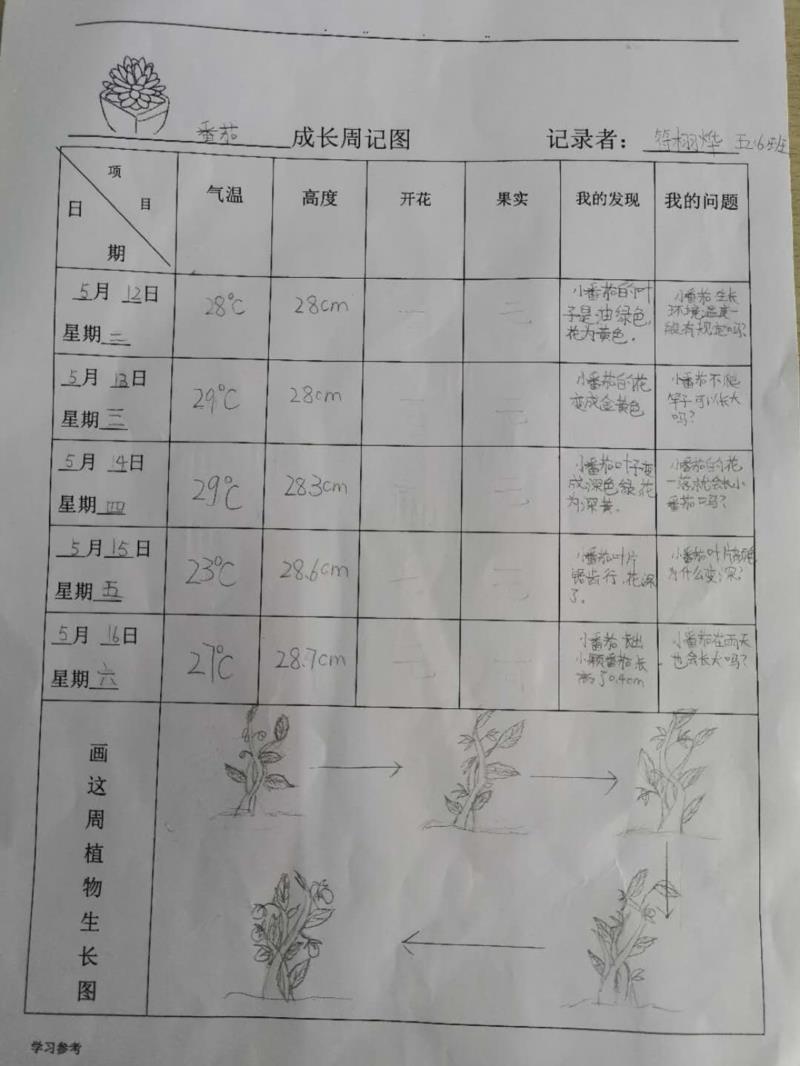 番茄 成长周记图 记录者： 符栩烨 五(6)班
项
目
日
期
气温 高度 开花 果实 我的发现 我的问题
5月 12日
星期二
28℃ 28cm 一 二
小番茄的叶
子是油绿色,
花为黄色。
小番茄生长
环境温度一
般有规定吗?
5月 13日
星期三
29℃ 28cm 一 二
小番茄的花
变成金黄色
小番茄不爬
竿子可以长大
吗?
5月 14日
星期四
29℃ 28.3cm 一 二
小番茄叶子变
成深色绿,花
为深黄。
小番茄的花
一落就会长小
番茄吗?
5月 15日
星期五
23℃ 28.6cm 一 二
小番茄叶片
锯齿行,花深
了。
小番茄叶片颜色
为什么变深?
5月 16日
星期六
27℃ 28.7cm 二
小番茄 出
小颗番茄,长
高了0.4cm
小番茄在雨天
也会长大吗?
画
这
周
植
物
生
长
图
学习参考